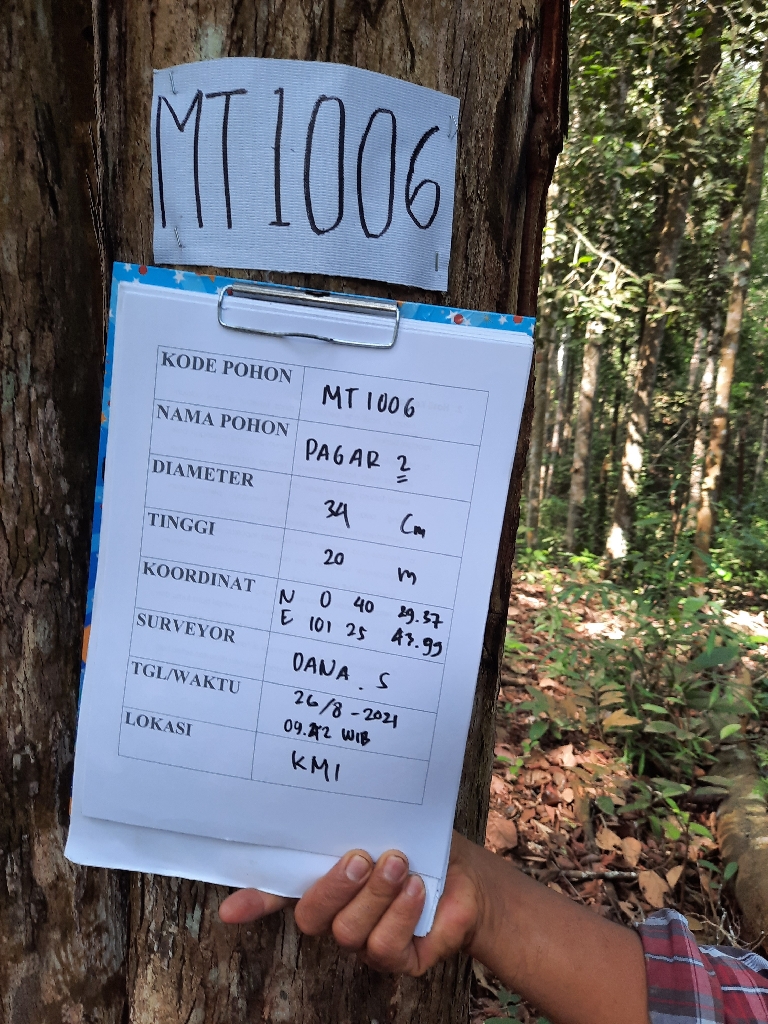 MT1006
KODE POHON MT1006
NAMA POHON PAGAR 2
DIAMETER 34 Cm
TINGGI 20 m
KOORDINAT N 0 40 29.37
E 101 25 47.99
SURVEYOR DANA . S
TGL/WAKTU 26/8-2021
WIB
LOKASI KMI